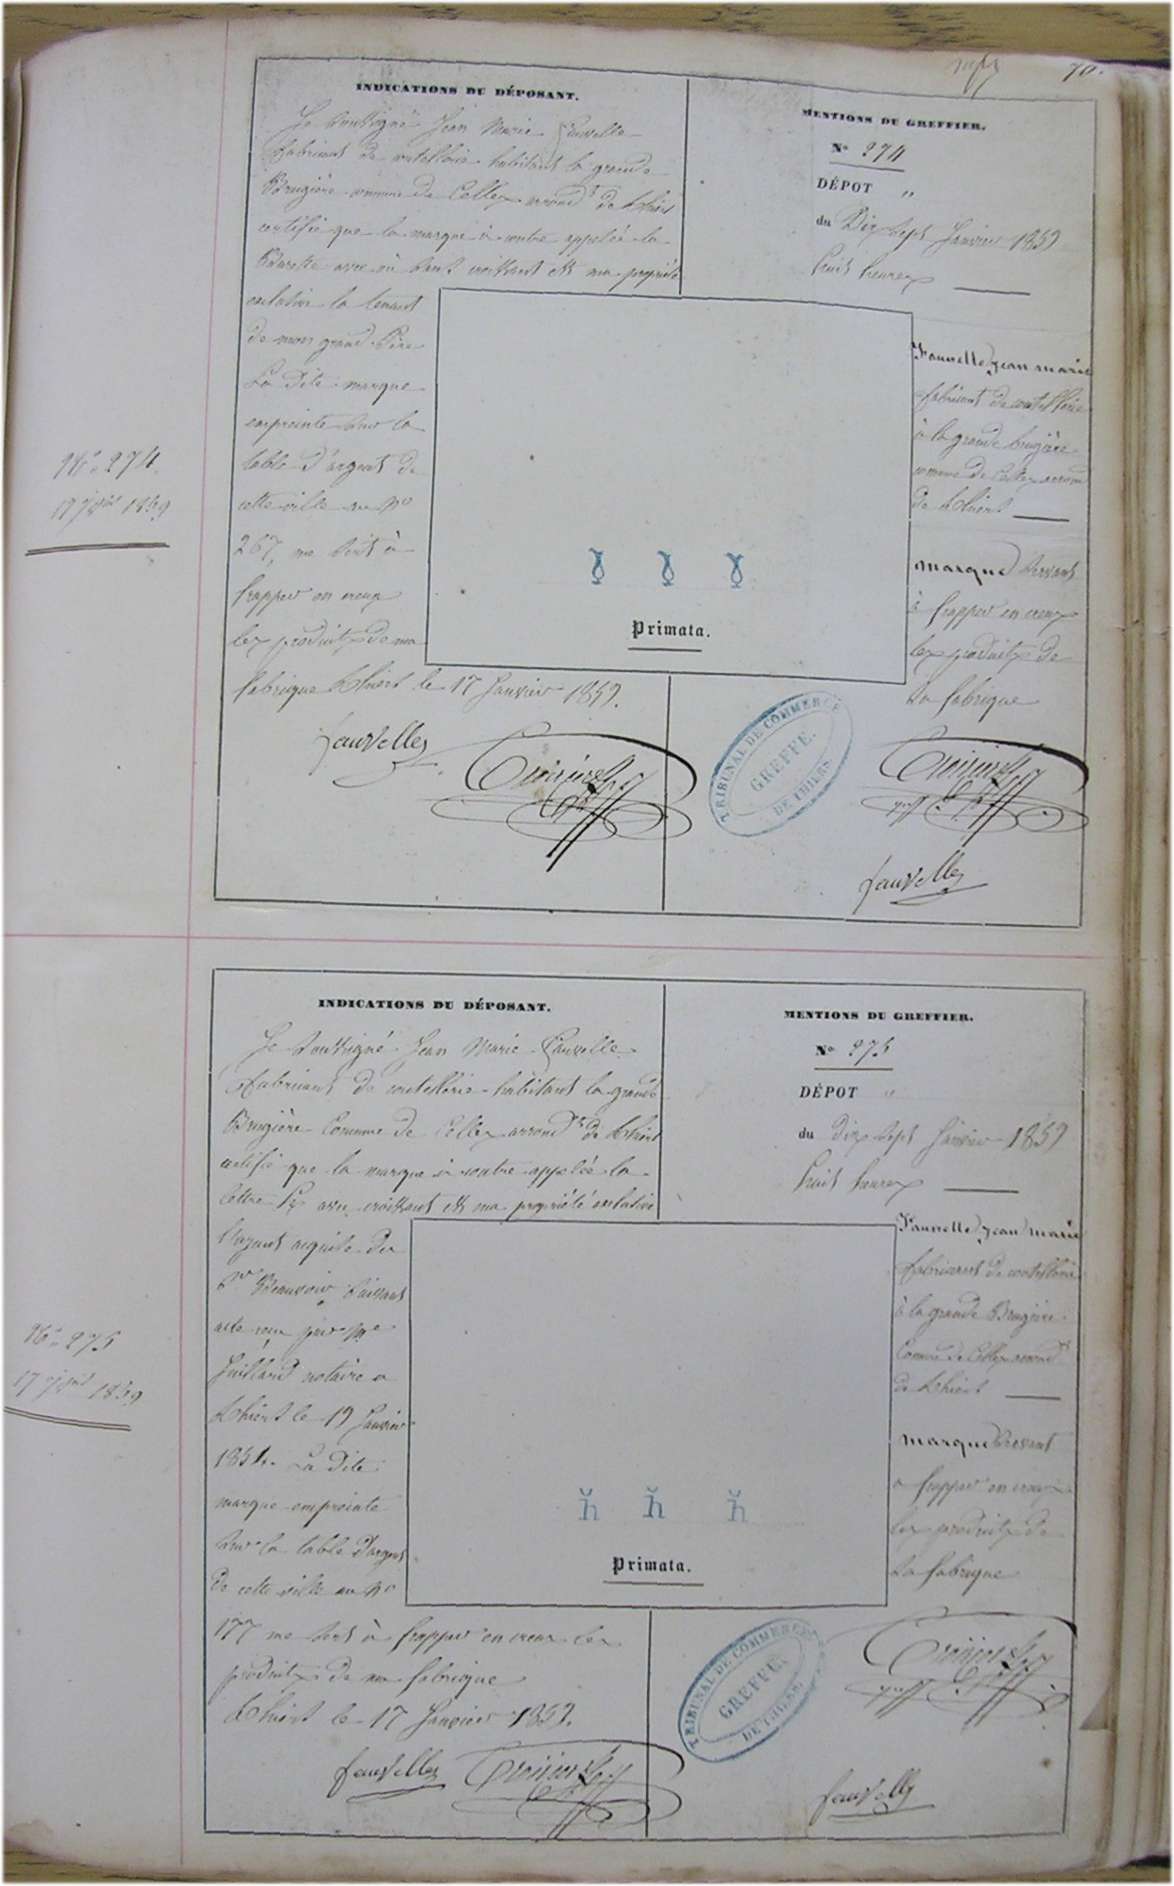 70.
INDICATIONS DU DÉPOSANT.
Je soussigné Jean Marie Fauvelle
fabricant de coutellerie habitant la grande
Brugière commune de Celles arrondt de Thiers
certifie que la marque ci contre appelée la
avec un croissant est ma propriété
exclusive la tenant
de mon grand Père
La dite marque
empreinte sur la
table d'argent de
cette ville au No
267, me sert à
frapper en creux
les produits de ma
fabrique Thiers le 17 Janvier 1859.
fauvelle
MENTIONS DU GREFFIER.
No 274
DÉPOT "
du Dix sept Janvier 1859
huit heures
Fauvelle Jean marie
fabricant de coutellerie
à la grande brugière
commune de Celles arrond
de Thiers
marque servant
à frapper en creux
les produits de
sa fabrique
Primata.
TRIBUNAL DE COMMERCE
GREFFE.
DE THIERS
fauvelle
No 274.
17 jer 1859
INDICATIONS DU DÉPOSANT.
Je soussigné Jean Marie Fauvelle
fabricant de coutellerie habitant la grande
Brugière Commune de Celles arrondt de Thiers
certifie que la marque ci contre appelée la
lettre avec croissant est ma propriété exclusive
l'ayant acquise du
Sr Beauvoir suivant
acte reçu par Me
notaire a
Thiers le 19 Janvier
La dite
marque empreinte
sur la table d'argent
de cette ville au No
177 me sert à frapper en creux les
produits de ma fabrique
Thiers le 17 Janvier 1859.
fauvelle
MENTIONS DU GREFFIER.
No 275
DÉPOT "
du dix sept Janvier 1859
huit heures
Fauvelle Jean marie
fabricant de coutellerie
à la grande Brugière
Commune de Celles arrondt
de Thiers
marque servant
a frapper en creux
les produits de
sa fabrique
h h h
Primata.
TRIBUNAL DE COMMERCE
GREFFE.
DE THIERS
fauvelle
No 275
17 jer 1859